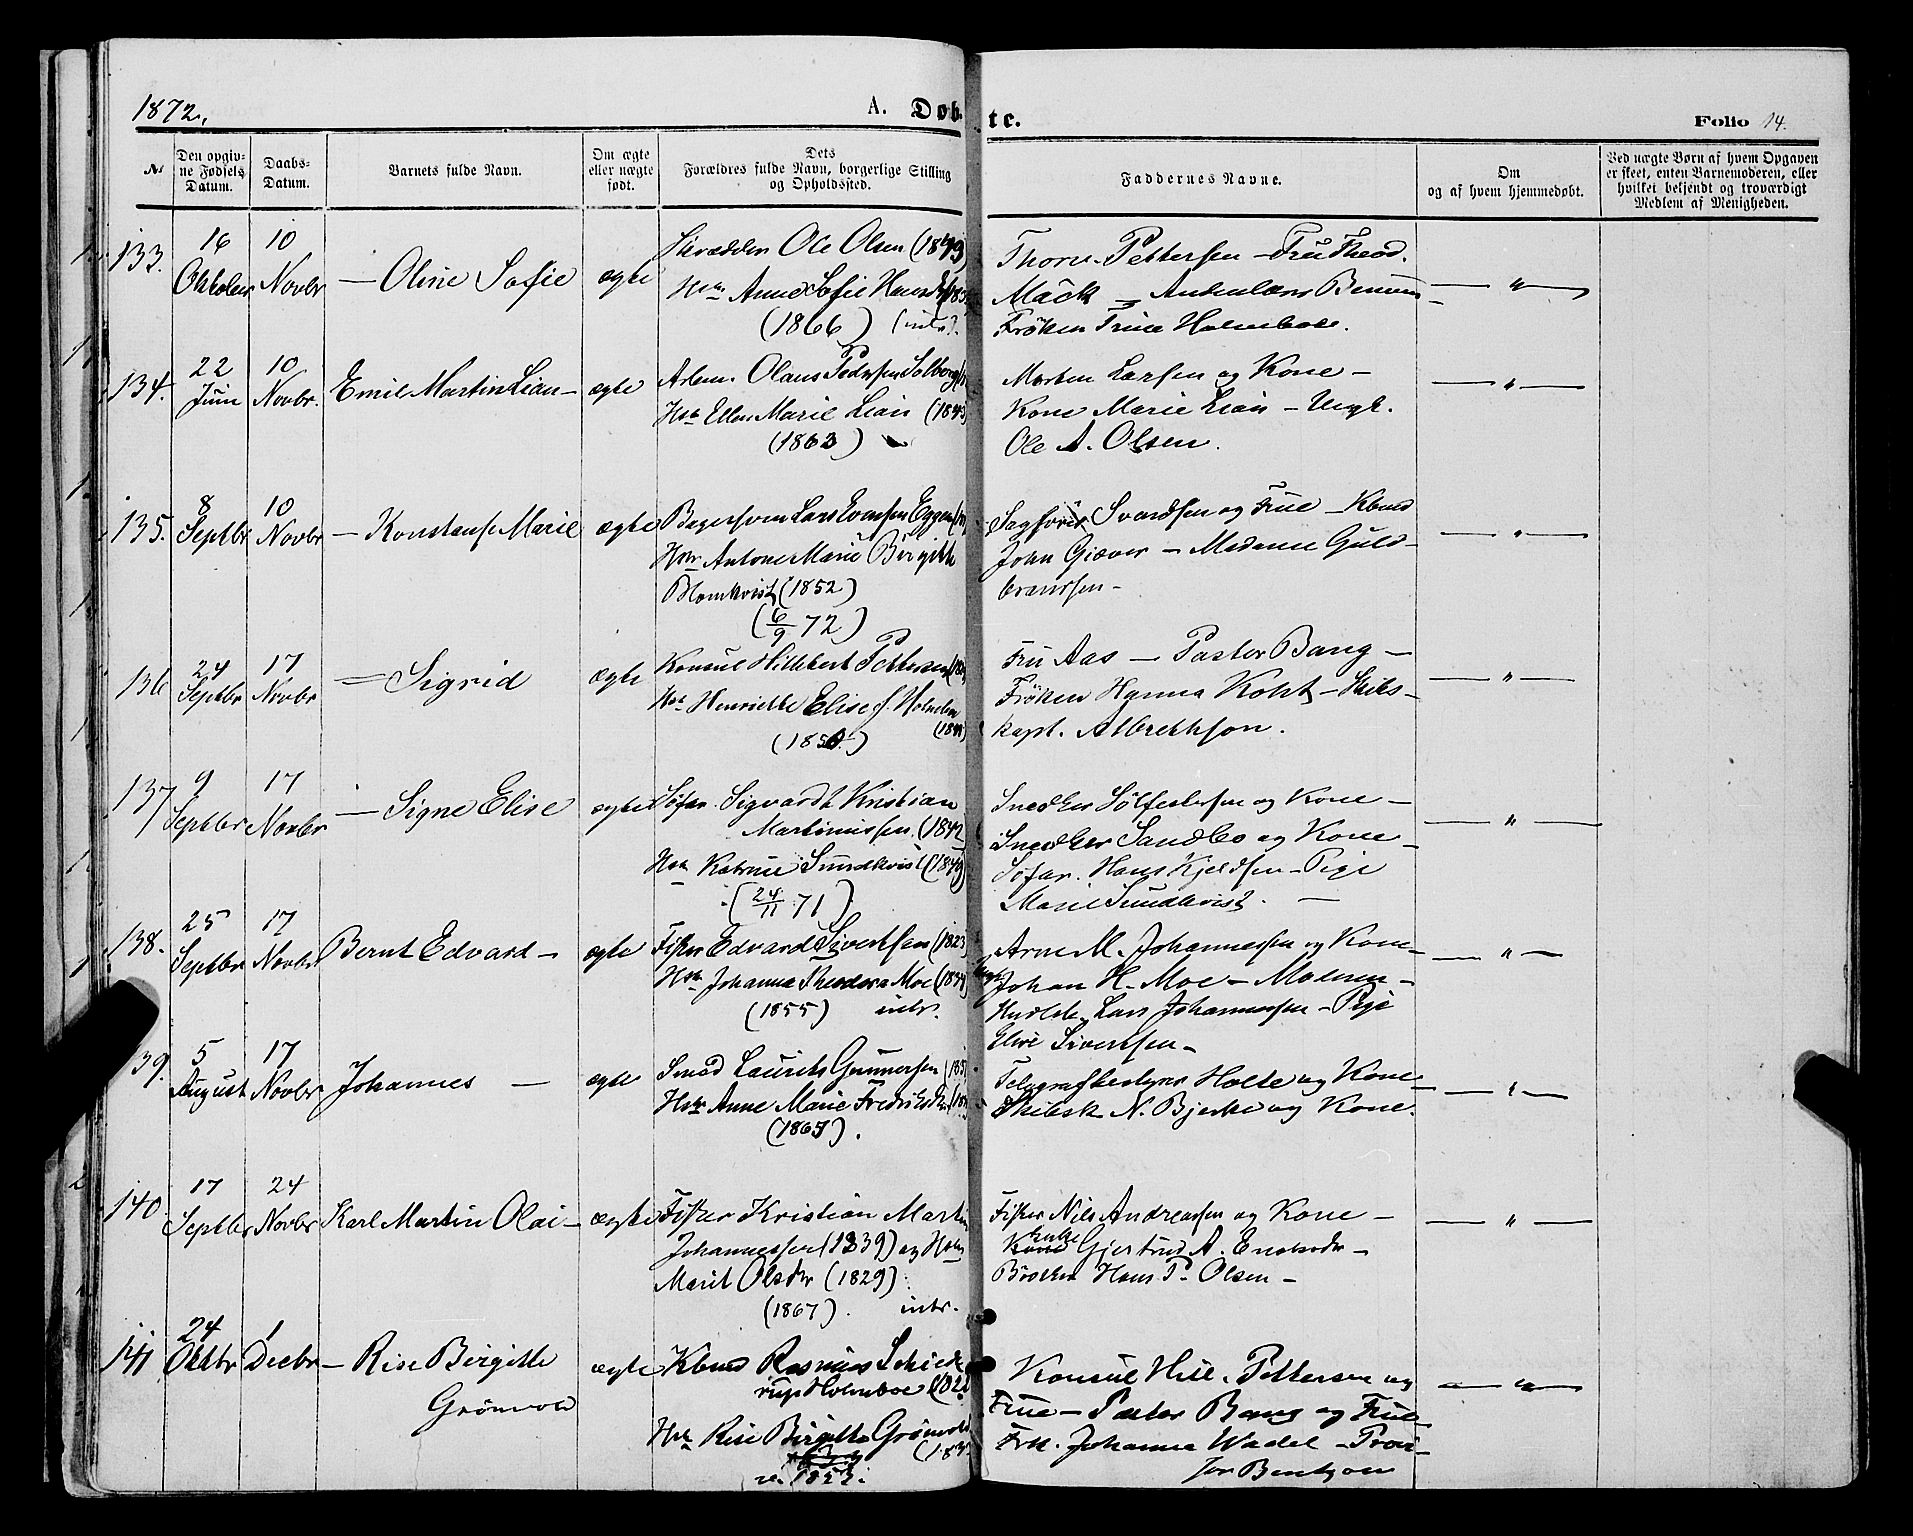 1872.
A. Døbte.
Folio 14.
No
Den opgivne Fødsels Datum.
Daabs-Datum.
Barnets fulde Navn.
Om ægte eller uægte født.
Dets Forældres fulde Navn, borgerlige Stilling og Opholdssted.
Faddernes Navne.
Om og af hvem hjemmedøbt.
Ved uægte Børn af hvem Opgaven er skeet, enten Barnemoderen, eller hvilket bekjendt og troværdigt Medlem af Menigheden.
133. 16 Oktober 10 Novbr — Oline Sofie ægte
Skrædder Ole Olsen (1849)
Hstr Anne Sofie Hansdtr
(1866) (intr.)
Thorv. Pettersen — Fru Theod.
Mack —
Frøken Trine Holmboe.
— " —
134. 22 Juni 10 Novbr. Emil Martin Lian — ægte
Arbm. Olaus Pedersen Solberg
Hstr Ellen Marie Lian (1843)
(1863)
Morten Larsen og Kone —
Kone Marie Lian — Ungk.
Ole A. Olsen.
— " —
135. 8 Septbr 10 Novbr — Konstanse Marie ægte
Bagersvend Lars Evensen Eggen
Hstr Antone Marie Birgitte
Blomkvist (1852)
(6/9 72)
Sagfører Svendsen og Frue — Kbmd
John Giæver — Madame Guld-
brandsen —
— " —
136 24 Septbr 17 Novbr — Sigrid ægte
Konsul Hillebert Pettersen
Hstr Henriette Elise f. Holmboe
(1850)
Fru Aas — Pastor Bang —
Frøken Hanna Koht — Skibs-
kapt. Albrektson.
— " —
137 9 Septbr 17 Novbr — Signe Elise ægte
Søfar. Sigvardt Kristian
Martinussen (1842
Hstr Katrine Sundkvist (1849)
(24/11 71)
Snedker Sølfestersen og Kone —
Snedker Sandbo og Kone —
Søfar. Hans Kjeldsen — Pige
Marie Sundkvist. —
— " —
138. 25 Septbr 17 Novbr Bernt Edvard — ægte
Fisker Edvard Sivertsen (1823
Hstr Johanna Theodora Moe
(1855) intr.
Arne M. Johannessen og Kone —
Johan H. Moe —
Lars Johannessen — Pige
Elise Sivertsen —
— " —
39. 5 August 17 Novbr Johannes — ægte
Smed Laurits Gunnersen
Hstr Anne Marie Fredriksdtr
Telegrafbestyrer Holte og Kone —
Skibsk N. Bjerke og Kone.
— " —
140 17 Septbr 24 Novbr Karl Martin Olai — ægte
Fisker Kristian Martin
Johannessen (1839) og Hstr
Marit Olsdtr (1829)
(1867). intr.
Fisker Nils Andreassen og Kone —
Enke Gjertrud A.
Hans P. Olsen —
— " —
141 24 Oktbr 1 Decbr — Rise Birgitte
Grönvold ægte
Kbmd Rasmus Schjel-
rup Holmboe
Hstr Rise Birgitte Grönvold
1853.
Konsul Hill. Pettersen og
Frue — Pastor Bang og Frue
Frk. Johanna Wadel — Provi-
sor Bentzon
— " —